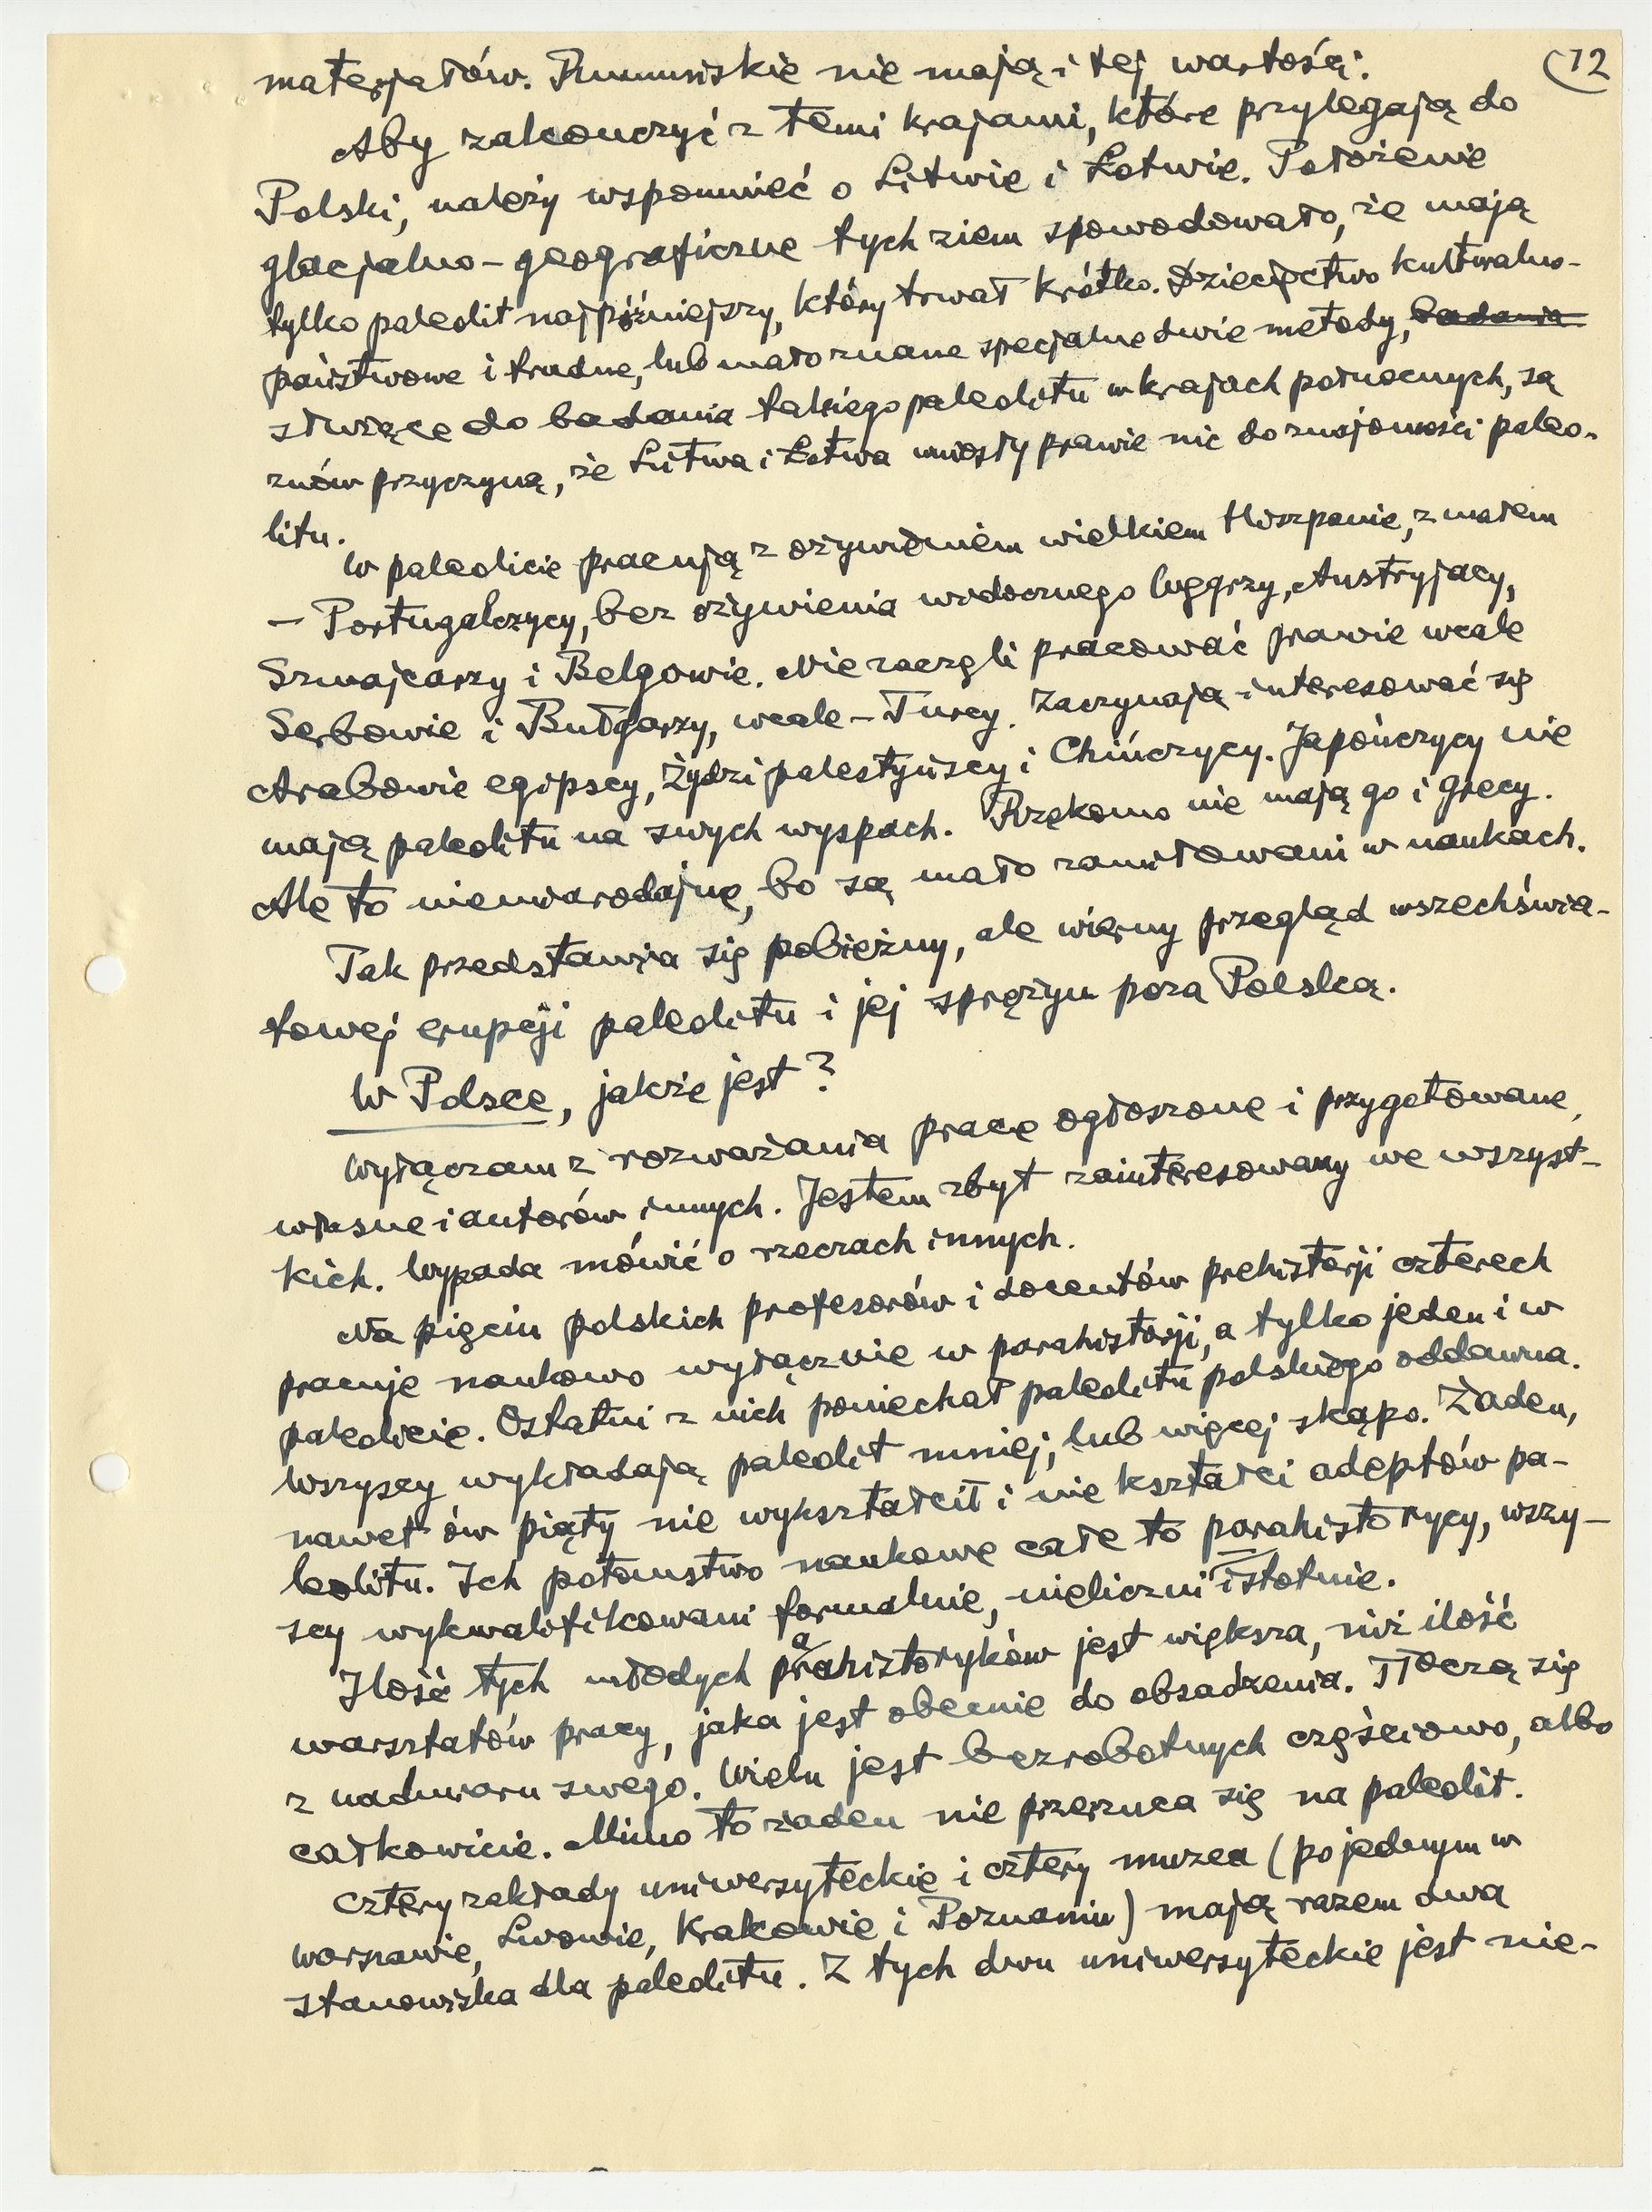 (12
materjałów. Rumuńskie nie mają i tej wartości.
Aby zakończyć z temi krajami, które przylegają do
Polski, należy wspomnieć o Litwie i Łotwie. Położenie
glacjalno-geograficzne tych ziem spowodowało, że mają
tylko paleolit najpóźniejszy, który trwał krótko. Dziecięctwo kulturalno-
państwowe i trudne, lub mało znane specjalne dwie metody, badania
służące do badania takiego paleolitu w krajach północnych, są
znów przyczyną, że Litwa i Łotwa wniosły prawie nic do znajomości paleo-
litu.
W paleolicie pracują z ożywieniem wielkiem Hiszpanie, z małem
— Portugalczycy, bez ożywienia widocznego Węgrzy, Austryjacy,
Szwajcarzy i Belgowie. Nie zaczęli pracować prawie wcale
Serbowie i Bułgarzy, wcale – Turcy. Zaczynają interesować się
Arabowie egipscy, Żydzi palestyńscy i Chińczycy. Japończycy nie
mają paleolitu na swych wyspach. Rzekomo nie mają go i Grecy.
Ale to niemiarodajne, bo są mało zamiłowani w naukach.
Tak przedstawia się pobieżny, ale wierny przegląd wszechświa-
towej erupcji paleolitu i jej sprężyn poza Polską.
W Polsce, jakże jest?
Wyłączam z rozważania prace ogłoszone i przygotowane,
własne i autorów innych. Jestem zbyt zainteresowany we wszyst-
kich. Wypada mówić o rzeczach innych.
Na pięciu polskich profesorów i docentów prehistorji czterech
pracuje naukowo wyłącznie w parahistorji, a tylko jeden i w
paleolicie. Ostatni z nich poniechał paleolitu polskiego oddawna.
Wszyscy wykładają paleolit mniej, lub więcej skąpo. Żaden,
nawet ów piąty nie wykształcił i nie kształci adeptów pa-
leolitu. Ich potomstwo naukowe całe to parahistorycy, wszy-
scy wykwalifikowani formalnie, nieliczni istotnie.
Ilość tych młodych parahistoryków jest większa, niż ilość
warsztatów pracy, jaka jest obecnie do obsadzenia. Tłoczą się
z nadmiaru swego. Wielu jest bezrobotnych częściowo, albo
całkowicie. Mimo to żaden nie przerzuca się na paleolit.
Cztery zakłady uniwersyteckie i cztery muzea (po jednym w
Warszawie, Lwowie, Krakowie i Poznaniu) mają razem dwa
stanowiska dla paleolitu. Z tych dwu uniwersyteckie jest nie-